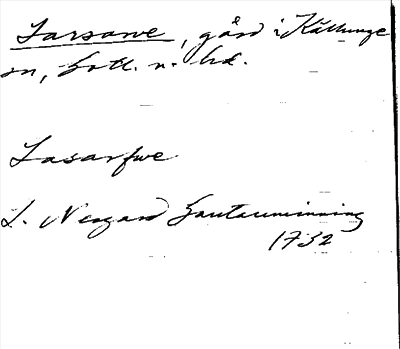 Larsarve, gård i Källunge
sn, Gotl. n. hd.
Lasarfwe
L. Neogard Gautauminning
1732